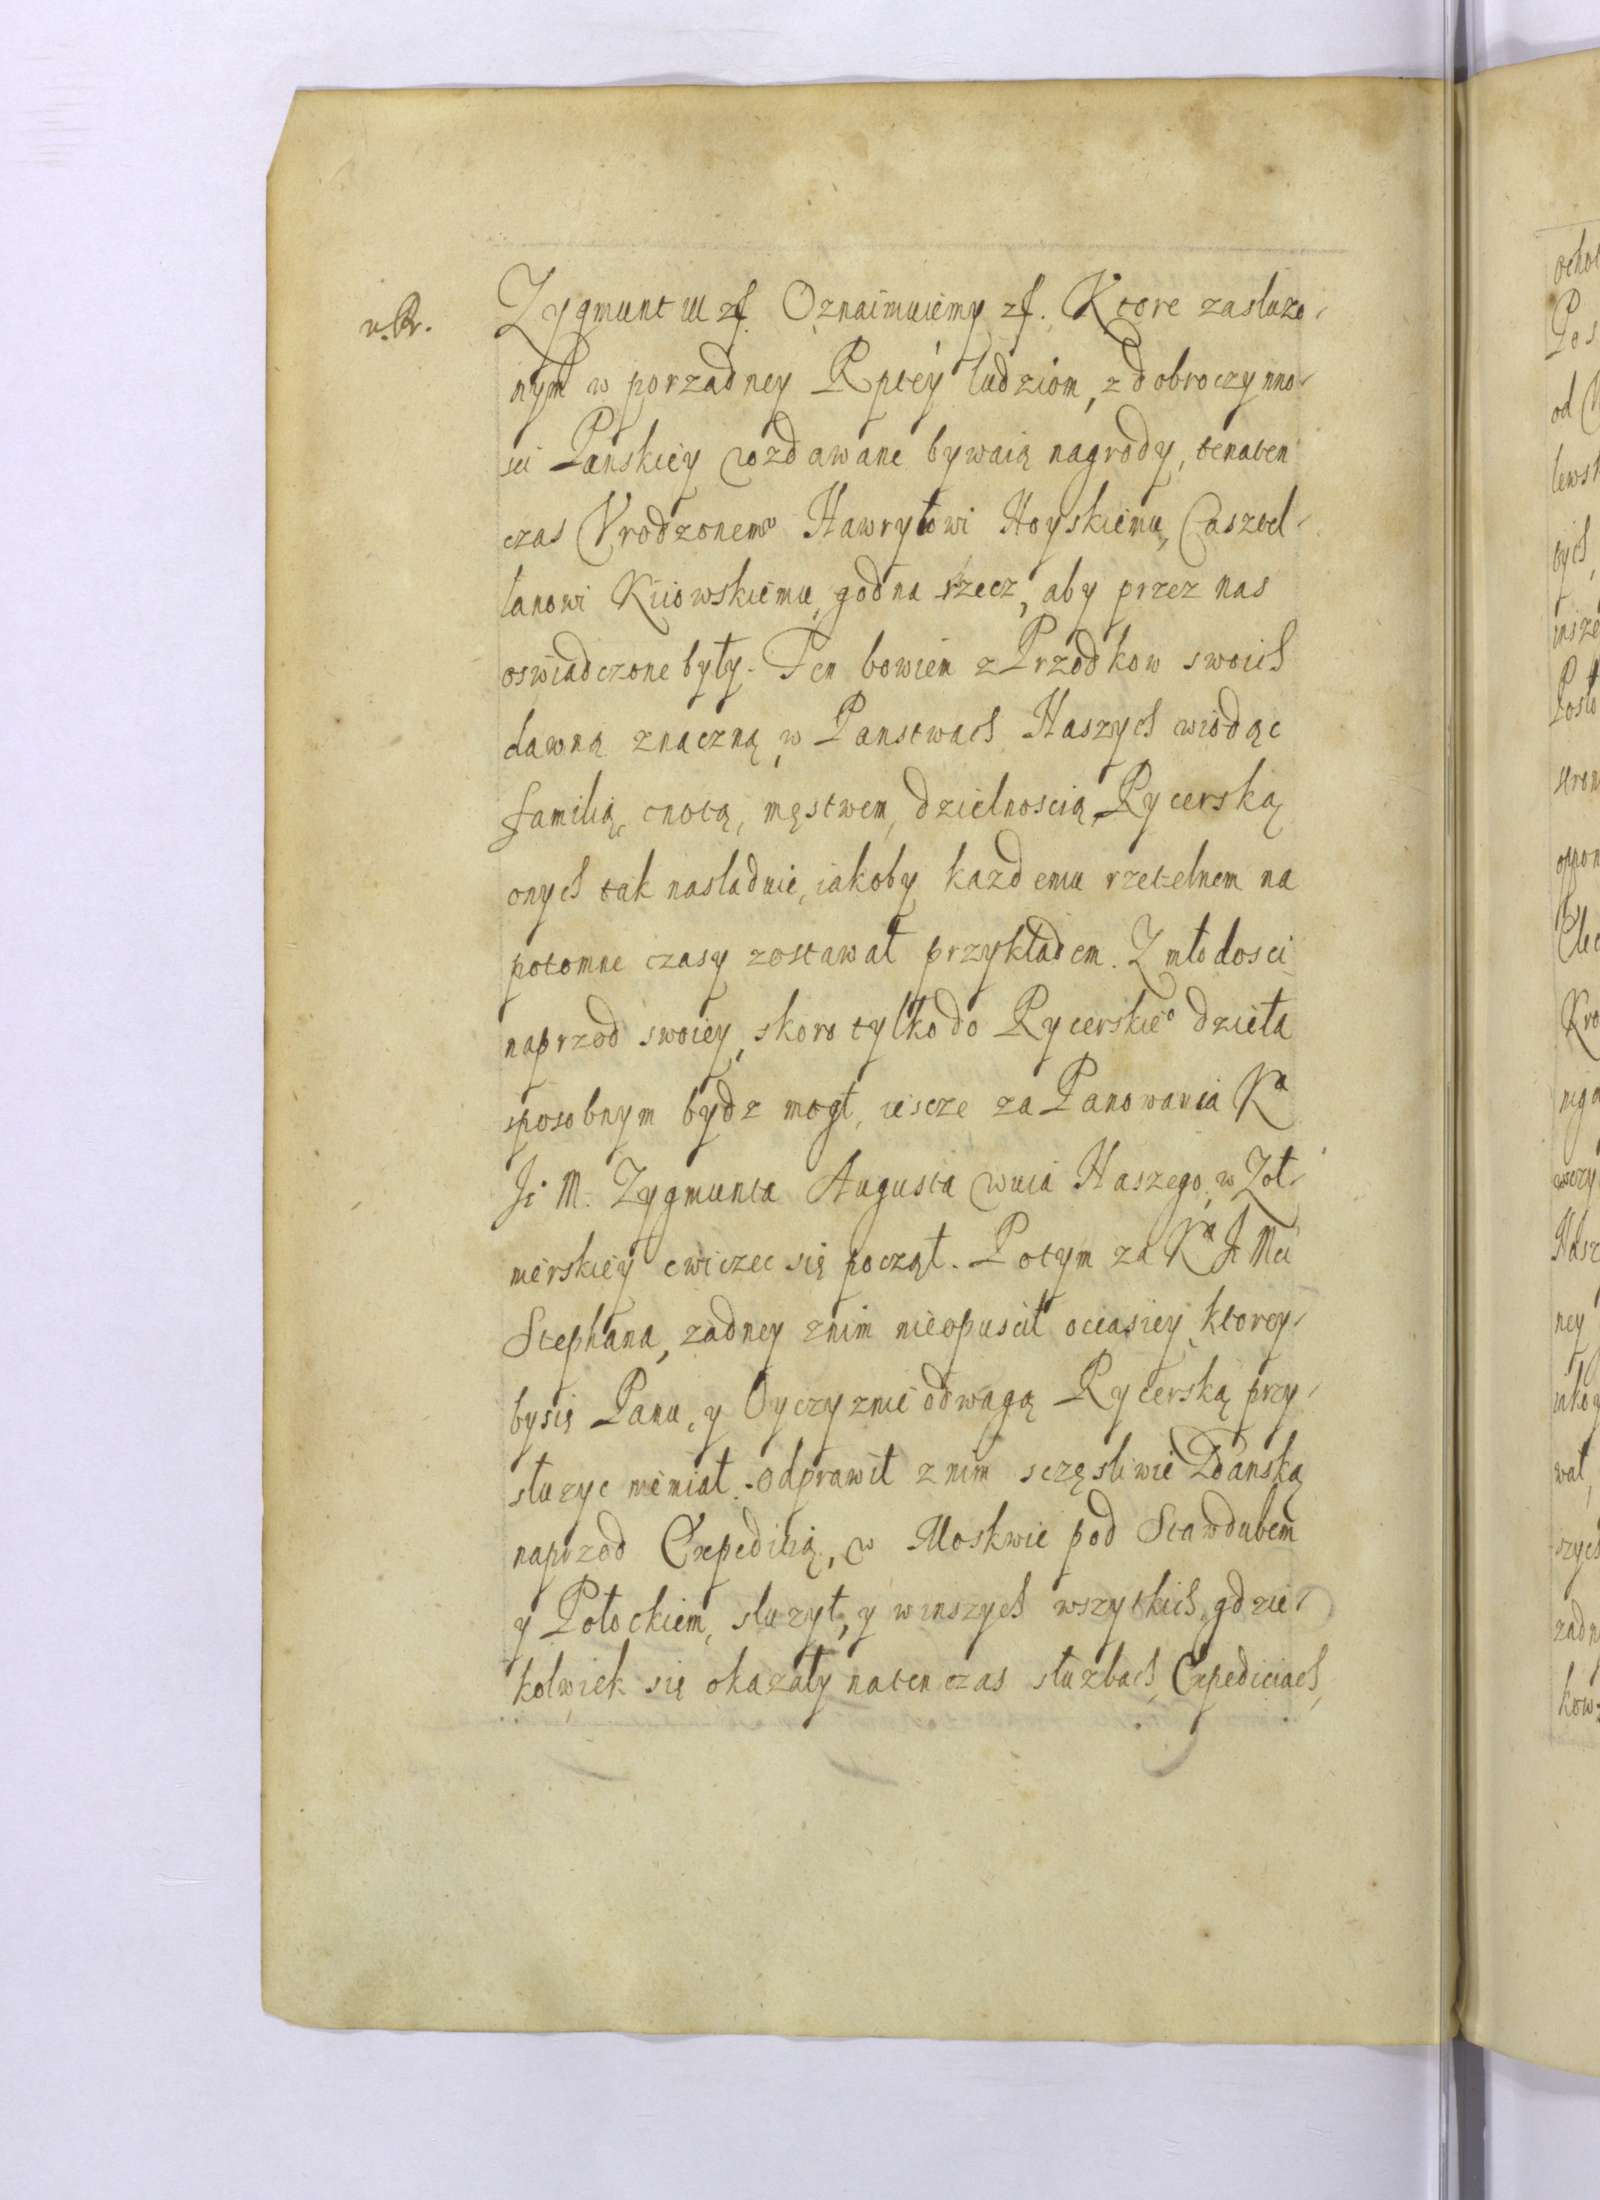 Zygmunt III zſ. Oznaimuiemy zſ. Ktore zasluzo-
nym w porządney Rptéy ludziom, z dobroczynno-
sci Panskiey rozdawane bywaią nagrody, tenaten
czas Vrodzonem° Hawryłowi Hoyskiemu, Casztel-
lanowi Kiiowskiemu, godna rzecz, aby przez nas
oswiadczone były. Ten bowiem z Przodkow swoich
dawną znaczną, w Panstwach Naszych wiodąc
familią, cnotą, męstwem, dzielnoscią Rycerską
onych tak nasladuie, iakoby kazdemu rzetelnem na
potomne czasy zostawał przykładem. Z młodosci
naprzod swoiey, skoro tylko do Rycerskie° dzieła
sposobnym bydz mogł, iescze za Panowania Kª
Ji M. Zygmunta Augusta wuia Naszego, w Zoł-
mierskiey cwiczec się począł. Potym za Kª J Mci
Stephana, zadney znim nieopuscił occasiey, ktorey-
bysię Panu, y Oyczyznie odwagą Rycerską przy-
słuzyc niemiał. Odprawił z nim sczęsliwie Gdanską
naprzod Expedicią, w Moskwie pod Stawdubem
y Połockiem, słuzył, y winszych wszytkich, gdzie-
kolwiek się okazały natenczas słuzbach, Expediciach,